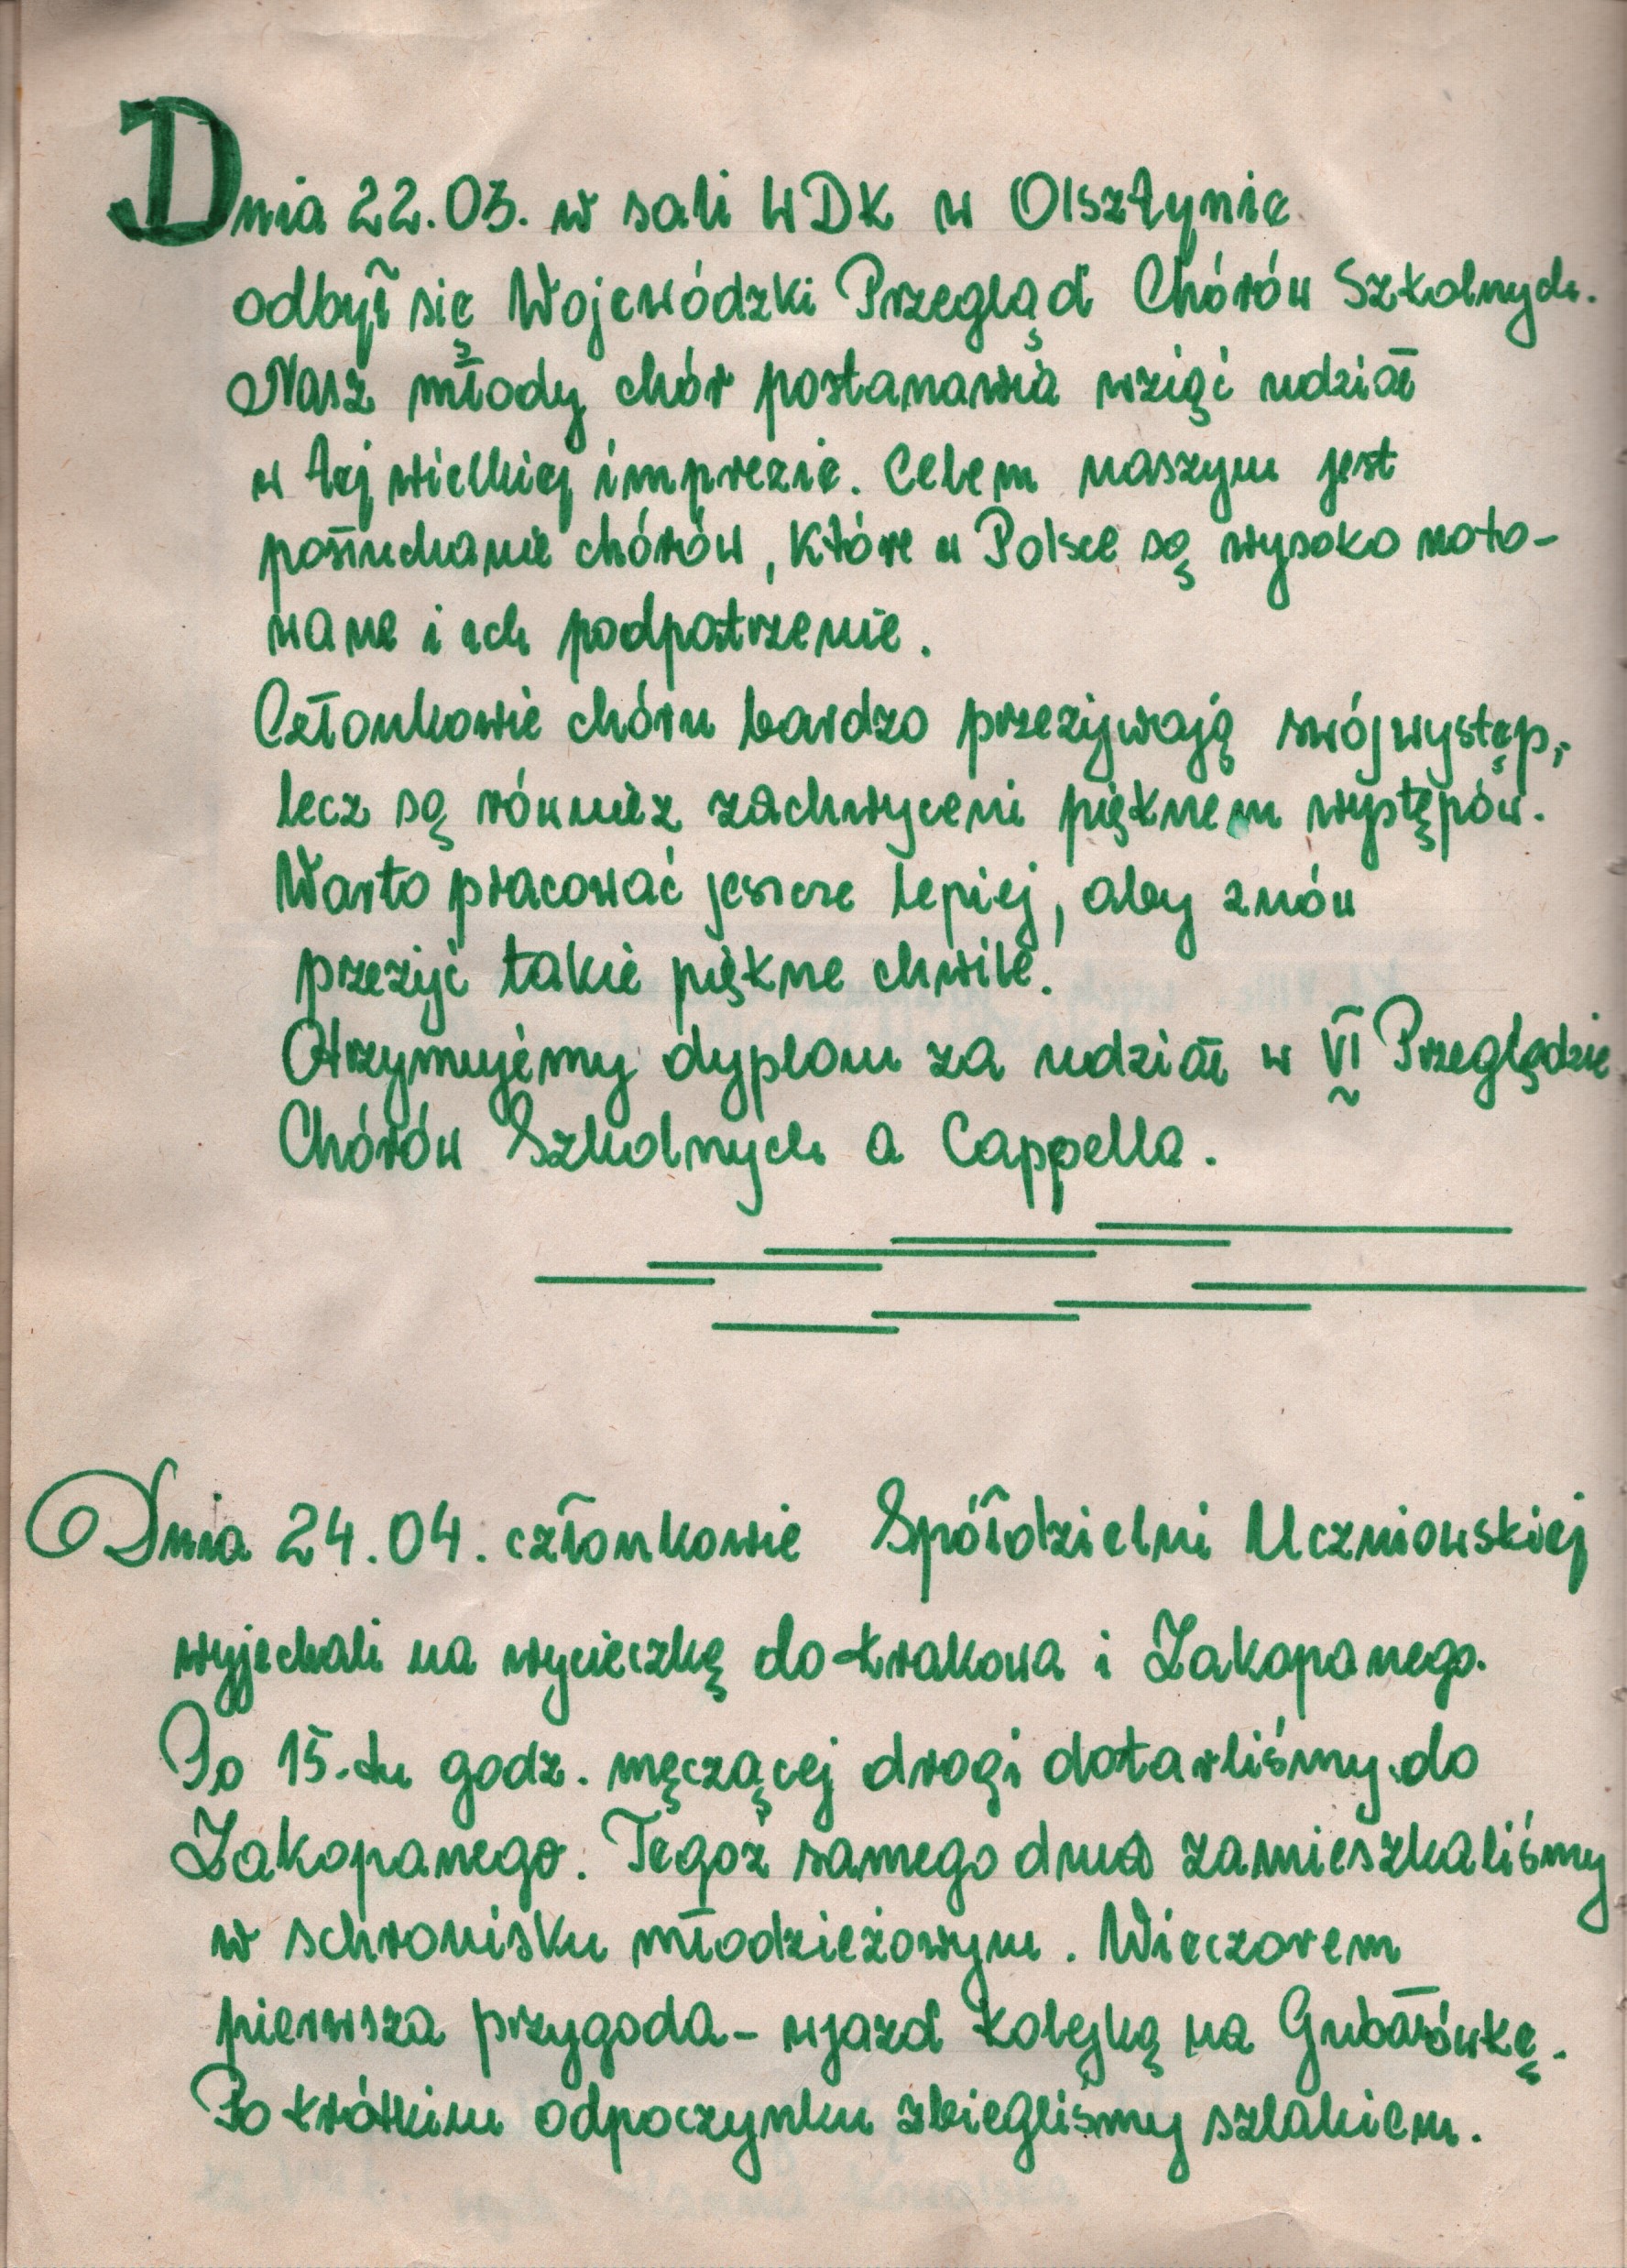 Dnia 22.03. w sali WDK w Olsztynie
odbył się Wojewódzki Przegląd Chórów Szkolnych.
Nasz młody chór postanawia wziąć udział
w tej wielkiej imprezie. Celem naszym jest
posłuchanie chórów, które w Polsce są wysoko noto-
wane i ich podpatrzenie.
Członkowie chóru bardzo przeżywają swój występ,
lecz są również zachwyceni pięknem występów.
Warto pracować jeszcze lepiej, aby znów
przeżyć takie piękne chwile.
Otrzymujemy dyplom za udział w VI Przeglądzie
Chórów Szkolnych a Cappella.
Dnia 24.04. członkowie Spółdzielni Uczniowskiej
wyjechali na wycieczkę do Krakowa i Zakopanego.
Po 15-tu godz. męczącej drogi dotarliśmy do
Zakopanego. Tegoż samego dnia zamieszkaliśmy
w schronisku młodzieżowym. Wieczorem
pierwsza przygoda - wjazd kolejką na Gubałówkę.
Po krótkim odpoczynku zbiegliśmy szlakiem.